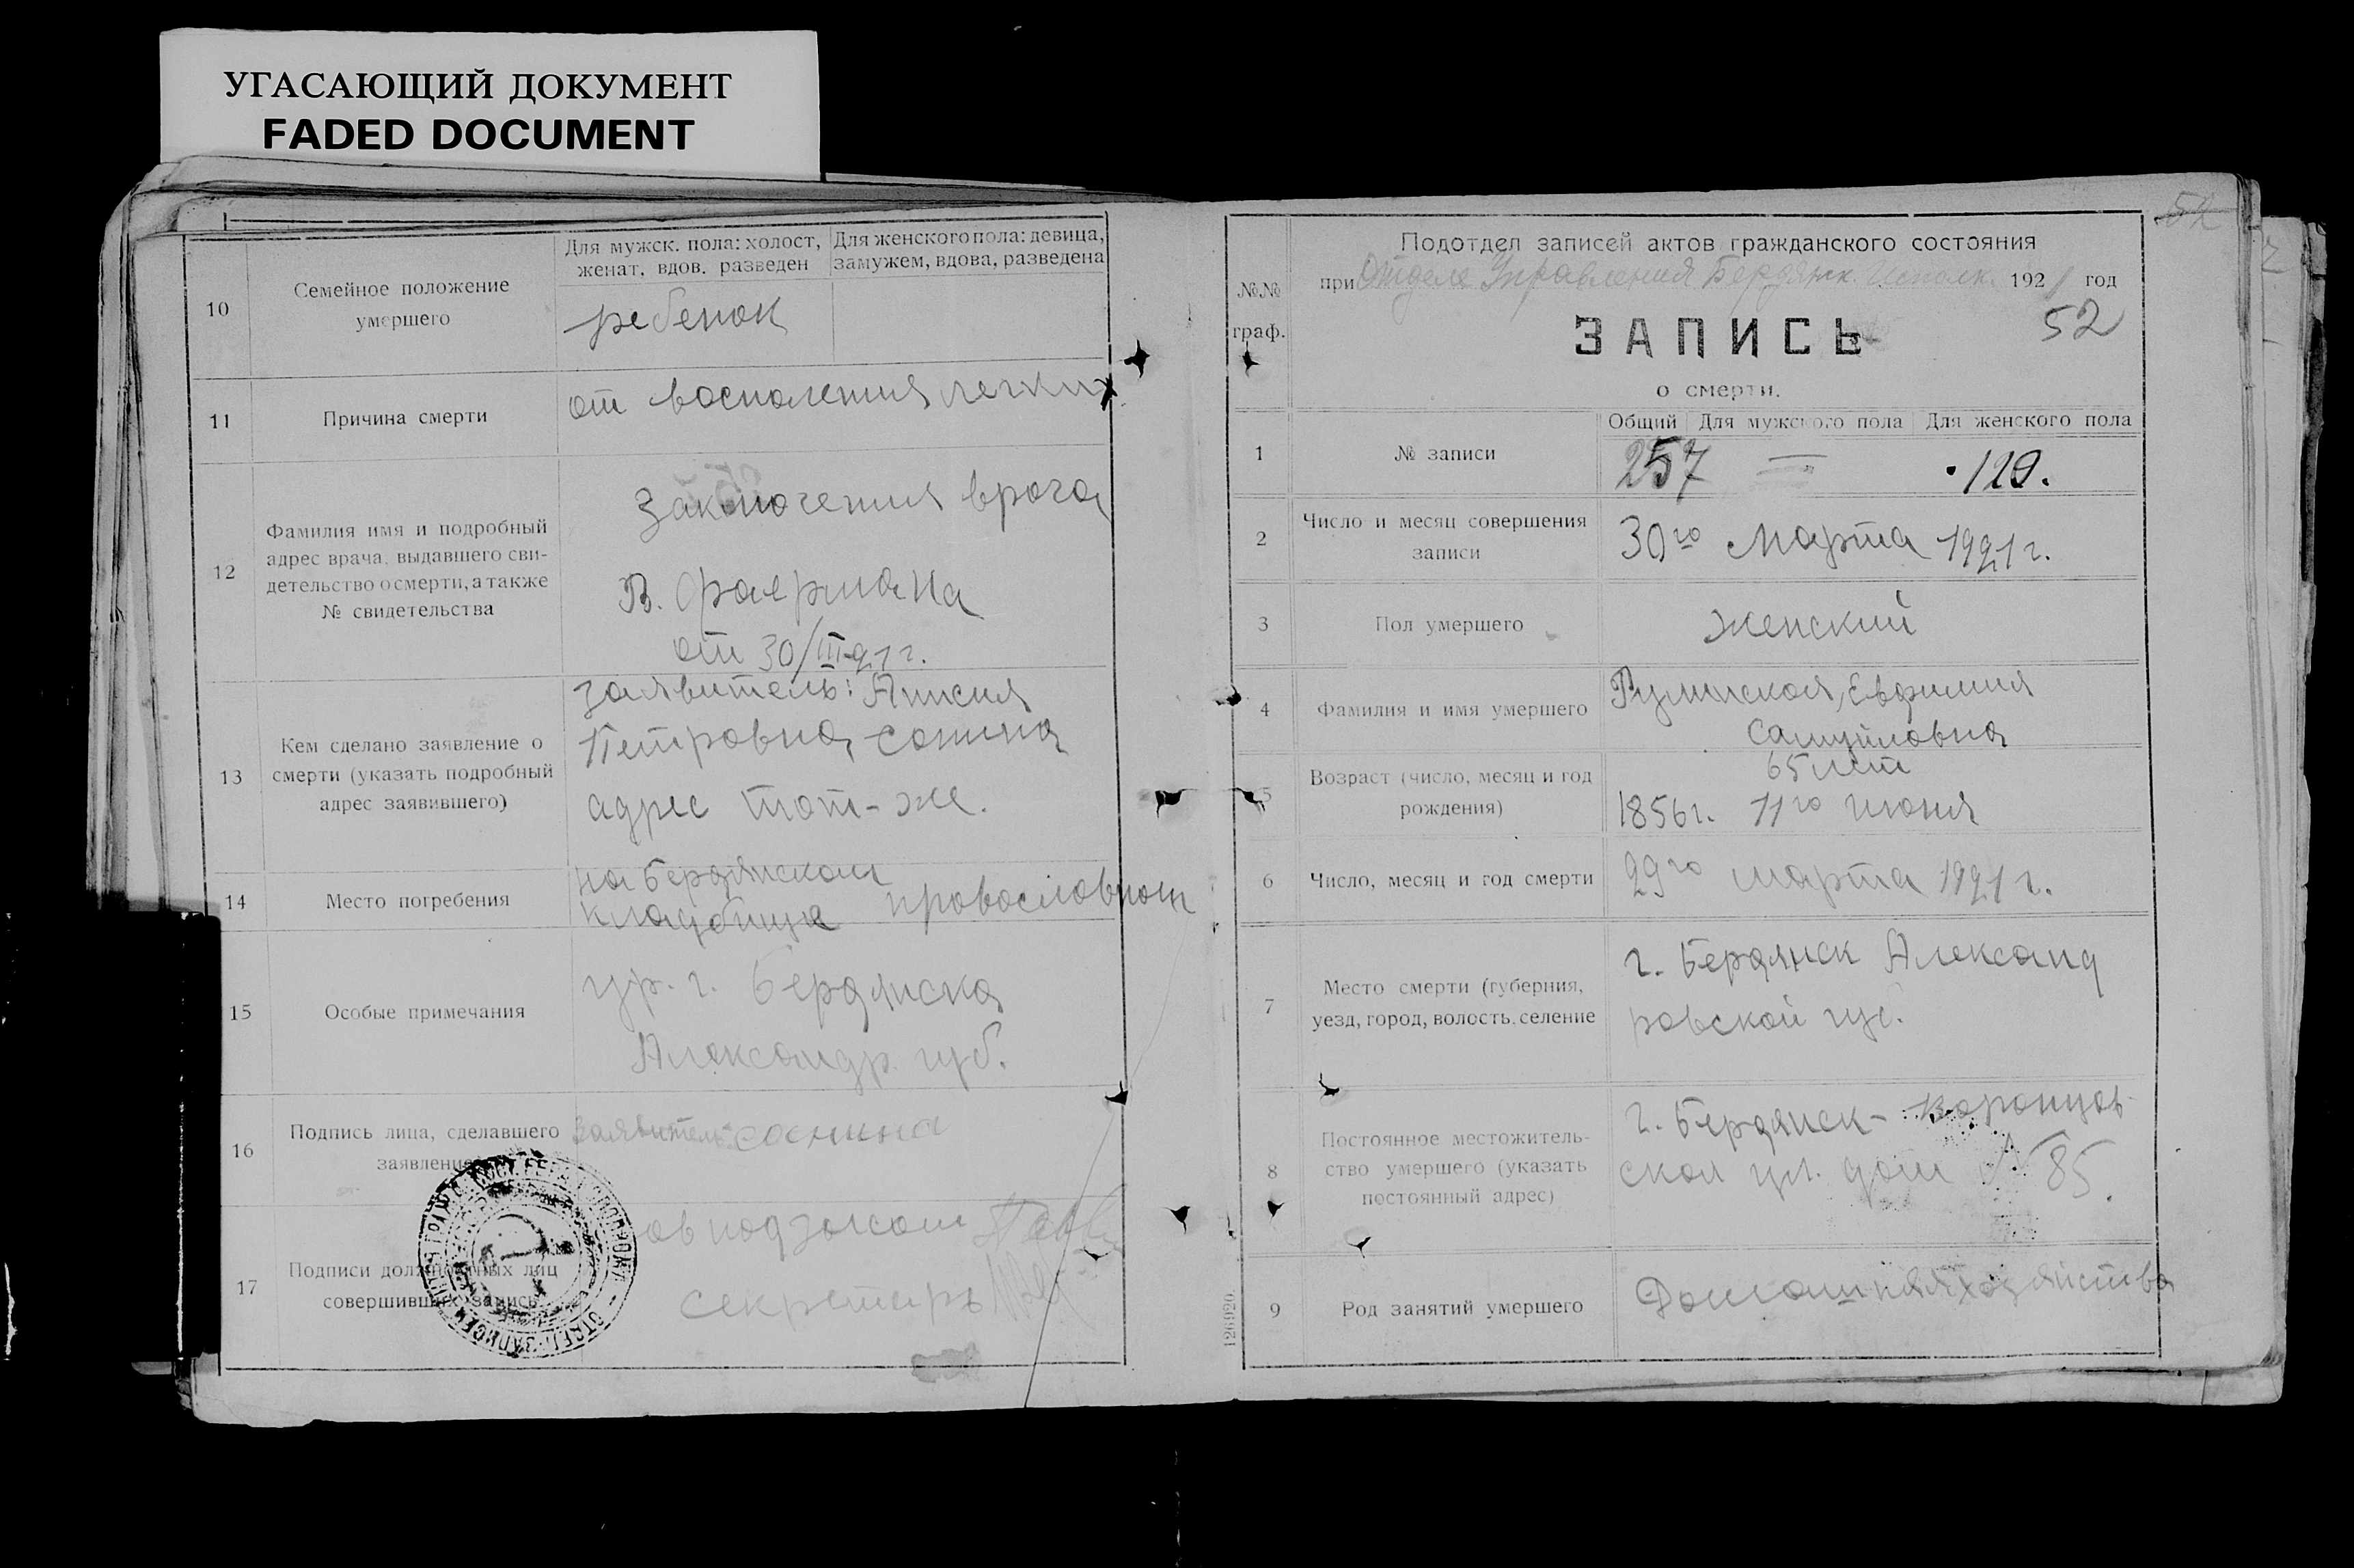 УГАСАЮЩИЙ ДОКУМЕНТ
FADED DOCUMENT
10
Семейное положение
умершего
Для мужск. пола: холост,
женат, вдов. разведен
Для женского пола: девица,
замужем, вдова, разведена
ребенок
11
Причина смерти
от воспаления легких
12
Фамилия имя и подробный
адрес врача, выдавшего сви-
детельство о смерти, а также
№ свидетельства
Заключения врача
В. Фаермана
от 30/III-21 г.
13
Кем сделано заявление о
смерти (указать подробный
адрес заявившего)
заявитель: Анисия
Петровна,
адрес тот-же.
14
Место погребения
на Бердянском
кладбище православном
15
Особые примечания
ур. г. Бердянска
Александр. губ.
16
Подпись лица, сделавшего
заявление
Заявитель
17
Подписи должностных лиц
совершивших запись
секретарь
52
№№
граф.
Подотдел записей актов гражданского состояния
при Отделе Управления Бердянск. Исполк. 1921 год
52
ЗАПИСЬ
о смерти.
1
№ записи
Общий
Для мужского пола
Для женского пола
257
—
129.
2
Число и месяц совершения
записи
30го Марта 1921 г.
3
Пол умершего
женский
4
Фамилия и имя умершего
Евфимия
Самуиловна
5
Возраст (число, месяц и год
рождения)
65 лет
1856 г. 11го июня
6
Число, месяц и год смерти
29го марта 1921 г.
7
Место смерти (губерния,
уезд, город, волость, селение
г. Бердянск Александ
ровской губ.
8
Постоянное местожитель-
ство умершего (указать
постоянный адрес)
г. Бердянск - Воронцов-
ская ул. дом № 85.
9
Род занятий умершего
Домашняя хозяйства
126920